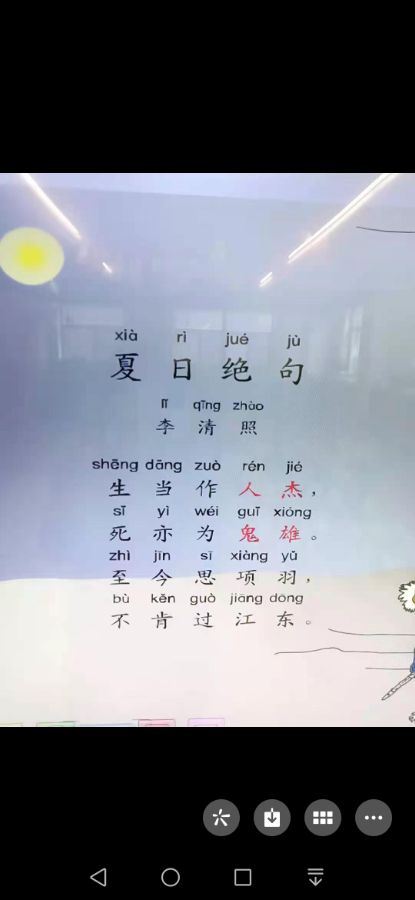 xià rì jué jù
夏日绝句
lǐ qīng zhào
李清照
shēng dāng zuò rén jié
生当作人杰，
sǐ yì wéi guǐ xióng
死亦为鬼雄。
zhì jīn sī xiàng yǔ
至今思项羽，
bù kěn guò jiāng dōng
不肯过江东。